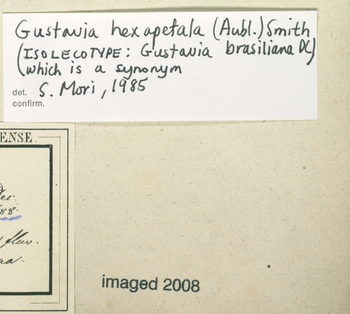 Gustavia hexapetala (Aubl.) Smith
(ISOLECOTYPE: Gustavia brasiliana DC)
(which is a synonym
det. S. Mori, 1985
confirm.
ENSE.
88.
flui.
imaged 2008